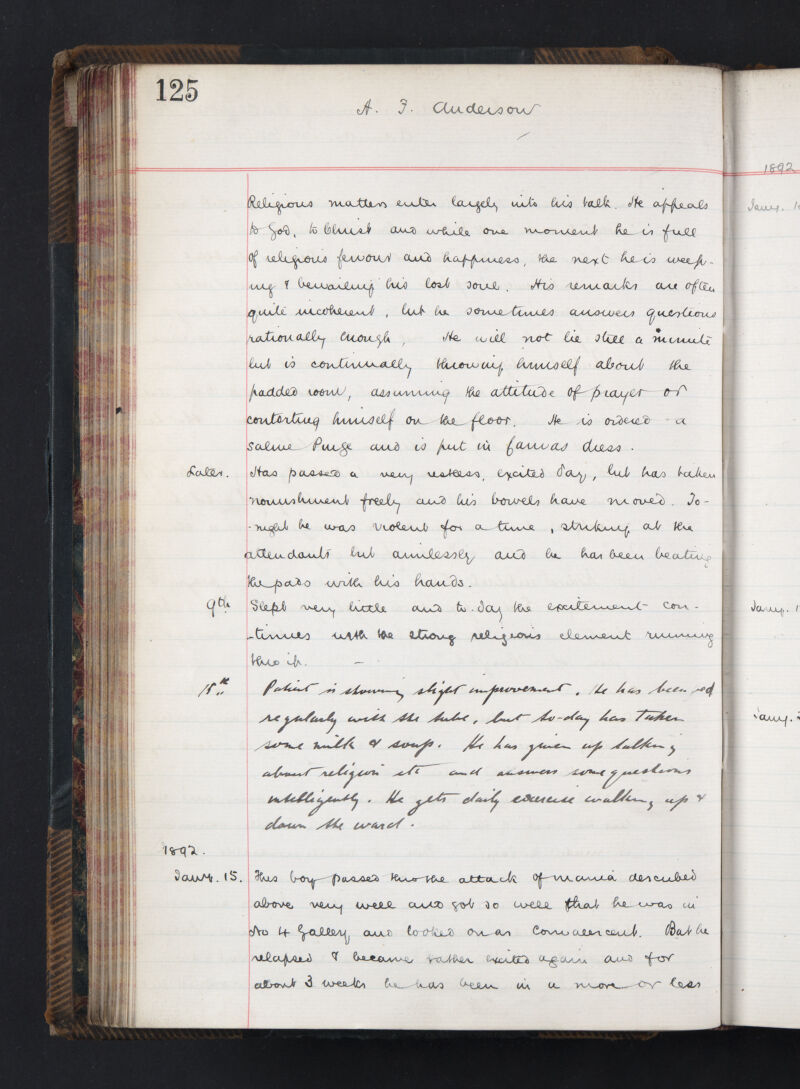 125
A. F. Anderson
1892
Religious matters enter largely into his talk. He appeals
Jany. 1
to God, to Christ and while one moment he is full
of religious fervour and happiness, the next he is weep-
ing & bewailing his lost soul. His remarks are often
quite incoherent, but he sometimes answers questions
rationally enough, He will not lie still a minute
but is continually throwing himself about the
padded room, assuming the attitude of prayer or
contorting himself on the floor. He is ordered a
Saline Purge and is put in canvas dress.
Later. Has passed a very restless, excited day, but has taken
nourishment freely and his bowels have moved. To-
-night he was violent for a time, striking at the
attendants but aimlessly and he has been beating
the pads with his hands.
9th Slept very little and to-day the excitement con-
Jany. 1
-tinues with the strong religious element running
thro it. —
18th Patient is showing slight improvement. He has been fed
regularly with the tube, but to-day has taken
Jany. 2
some milk & soup. He has given up talking
about religion etc and answers some questions
intelligently. He gets daily exercise walking up &
down the ward.
1892.
Jany. 15. This boy passed thro the attack of mania described
above very well and got so well that he was in
No 4 Gallery and looked on as Convalescent. But he
relapsed & became rather excited again and for
about 3 weeks he has been in a more or less